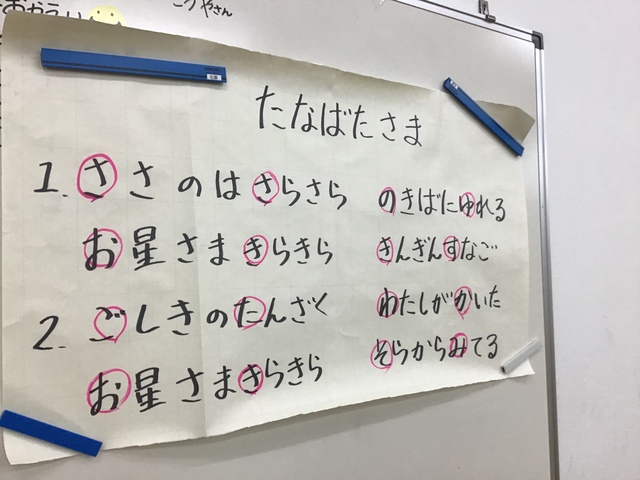 こうやさん
たなばたさま
1. ささのは さらさら のきばにゆれる
お星さま きらきら きんぎんすなご
2. ごしきのたんざく わたしがかいた
お星さまきらきら そらからみてる